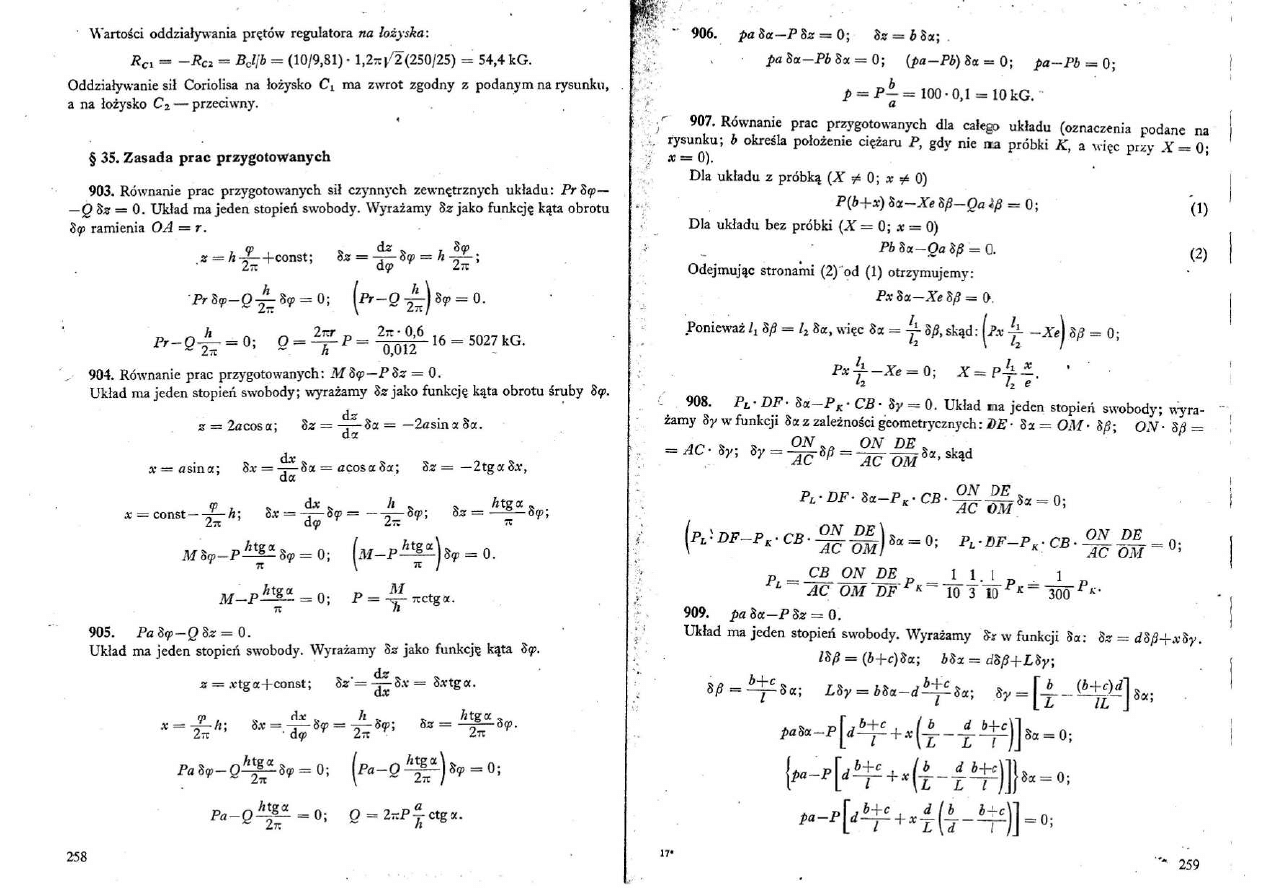 Wartości oddziaływania prętów regulatora na łożyska:
R_C1 = −R_C2 = B_c l/b = (10/9,81) · 1,2π√2(250/25) = 54,4 kG.
Oddziaływanie sił Coriolisa na łożysko C₁ ma zwrot zgodny z podanym na rysunku,
a na łożysko C₂ — przeciwny.
§ 35. Zasada prac przygotowanych
903. Równanie prac przygotowanych sił czynnych zewnętrznych układu: Pr δφ—
—Q δz = 0. Układ ma jeden stopień swobody. Wyrażamy δz jako funkcję kąta obrotu
δφ ramienia OA = r.
z = h φ/2π + const; δz = dz/dφ δφ = h δφ/2π;
Pr δφ−Q h/2π δφ = 0; (Pr−Q h/2π) δφ = 0.
Pr−Q h/2π = 0; Q = 2πr/h P = 2π · 0,6/0,012 16 = 5027 kG.
904. Równanie prac przygotowanych: M δφ−P δz = 0.
Układ ma jeden stopień swobody; wyrażamy δz jako funkcję kąta obrotu śruby δφ.
z = 2a cos α; δz = dz/dα δα = −2a sin α δα.
x = a sin α; δx = dx/dα δα = a cos α δα; δz = −2 tg α δx,
x = const− φ/2π h; δx = dx/dφ δφ = − h/2π δφ; δz = h tg α/π δφ;
M δφ−P h tg α/π δφ = 0; (M−P h tg α/π) δφ = 0.
M−P h tg α/π = 0; P = M/h π ctg α.
905. Pa δφ−Q δz = 0.
Układ ma jeden stopień swobody. Wyrażamy δz jako funkcję kąta δφ.
z = x tg α+const; δz = dz/dx δx = δx tg α.
x = φ/2π h; δx = dx/dφ δφ = h/2π δφ; δz = h tg α/2π δφ.
Pa δφ−Q h tg α/2π δφ = 0; (Pa−Q h tg α/2π) δφ = 0;
Pa−Q h tg α/2π = 0; Q = 2πP a/h ctg α.
258
906. pa δα−P δz = 0; δz = b δα;
pa δα−Pb δα = 0; (pa−Pb) δα = 0; pa−Pb = 0;
p = P b/a = 100 · 0,1 = 10 kG.
907. Równanie prac przygotowanych dla całego układu (oznaczenia podane na
rysunku; b określa położenie ciężaru P, gdy nie ma próbki K, a więc przy X = 0;
x = 0).
Dla układu z próbką (X ≠ 0; x ≠ 0)
P(b+x) δα−Xe δβ−Qa δβ = 0; (1)
Dla układu bez próbki (X = 0; x = 0)
Pb δα−Qa δβ = 0. (2)
Odejmując stronami (2) od (1) otrzymujemy:
Px δα−Xe δβ = 0.
Ponieważ l₁ δβ = l₂ δα, więc δα = l₁/l₂ δβ, skąd: (Px l₁/l₂ −Xe) δβ = 0;
Px l₁/l₂ −Xe = 0; X = P l₁/l₂ x/e.
908. P_L · DF · δα−P_K · CB · δγ = 0. Układ ma jeden stopień swobody; wyra-
żamy δγ w funkcji δα z zależności geometrycznych: DE · δα = OM · δβ; ON · δβ =
= AC · δγ; δγ = ON/AC δβ = ON/AC DE/OM δα, skąd
P_L · DF · δα−P_K · CB · ON/AC DE/OM δα = 0;
(P_L · DF−P_K · CB · ON/AC DE/OM) δα = 0; P_L · DF−P_K · CB · ON/AC DE/OM = 0;
P_L = CB/AC ON/OM DE/DF P_K = 1/10 1/3 1/10 P_K = 1/300 P_K.
909. pa δα−P δz = 0.
Układ ma jeden stopień swobody. Wyrażamy δz w funkcji δα: δz = dδβ+xδγ.
lδβ = (b+c)δα; bδα = dδβ+Lδγ;
δβ = b+c/l δα; Lδγ = bδα−d b+c/l δα; δγ = [b/L − (b+c)d/lL] δα;
paδα−P[d b+c/l + x(b/L − d/L b+c/l)] δα = 0;
{pa−P[d b+c/l + x(b/L − d/L b+c/l)]} δα = 0;
pa−P[d b+c/l + x d/L (b/d − b+c/l)] = 0;
17*
259